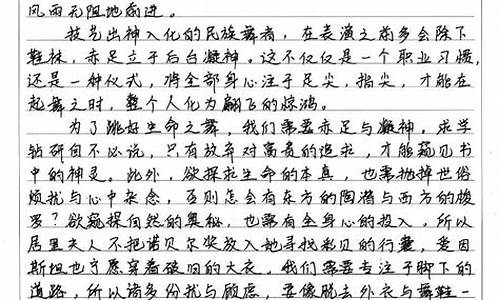 风雨无阻地前进。
技艺出神入化的民族舞者，在表演之前多会除下
鞋袜，赤足立于后台凝神。这不仅仅是一个职业习惯，
还是一种仪式，将全部身心注于足尖，指尖，才能在
起舞之时，整个人化为翩飞的惊鸿。
为了跳好生命之舞，我们需要赤足与凝神。求学
钻研自不必说，只有放弃对富贵的追求，才能窥见书
中的神灵。此外，欲探求生命的本真，也需抛掉世俗
烦扰与心中杂念，否则怎会有东方的陶潜与西方的梭
罗？欲窥探自然的奥秘，也需有全身心的投入。所以
居里夫人不把诺贝尔奖放入她寻找彩贝的行囊，爱因
斯坦也宁愿穿着破旧的大衣。我们需要专注于脚下的
道路，所以诸多纷扰与顾虑，要像脱去外衣与舞鞋一